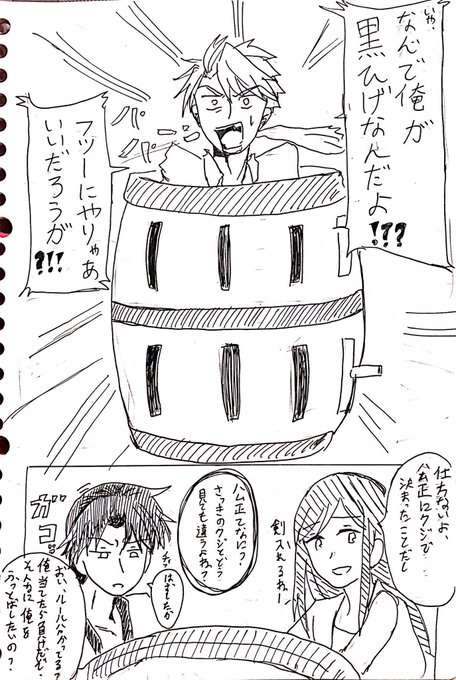 いや、
なんで俺が
黒ひげなんだよ
!???
フツーにやりゃあ
いいだろうが
?!!!
バーン
仕方ないよ
公正にクジで
決まったことだし
剣入れるねー
公正てなに?
さっきのクジどう
見ても違うよね?
チッ
はずしたか
ガコ
おい、ルール分かってる?
俺当てたら負けだぞ
そんなに俺を
ぶっとばしたいの?